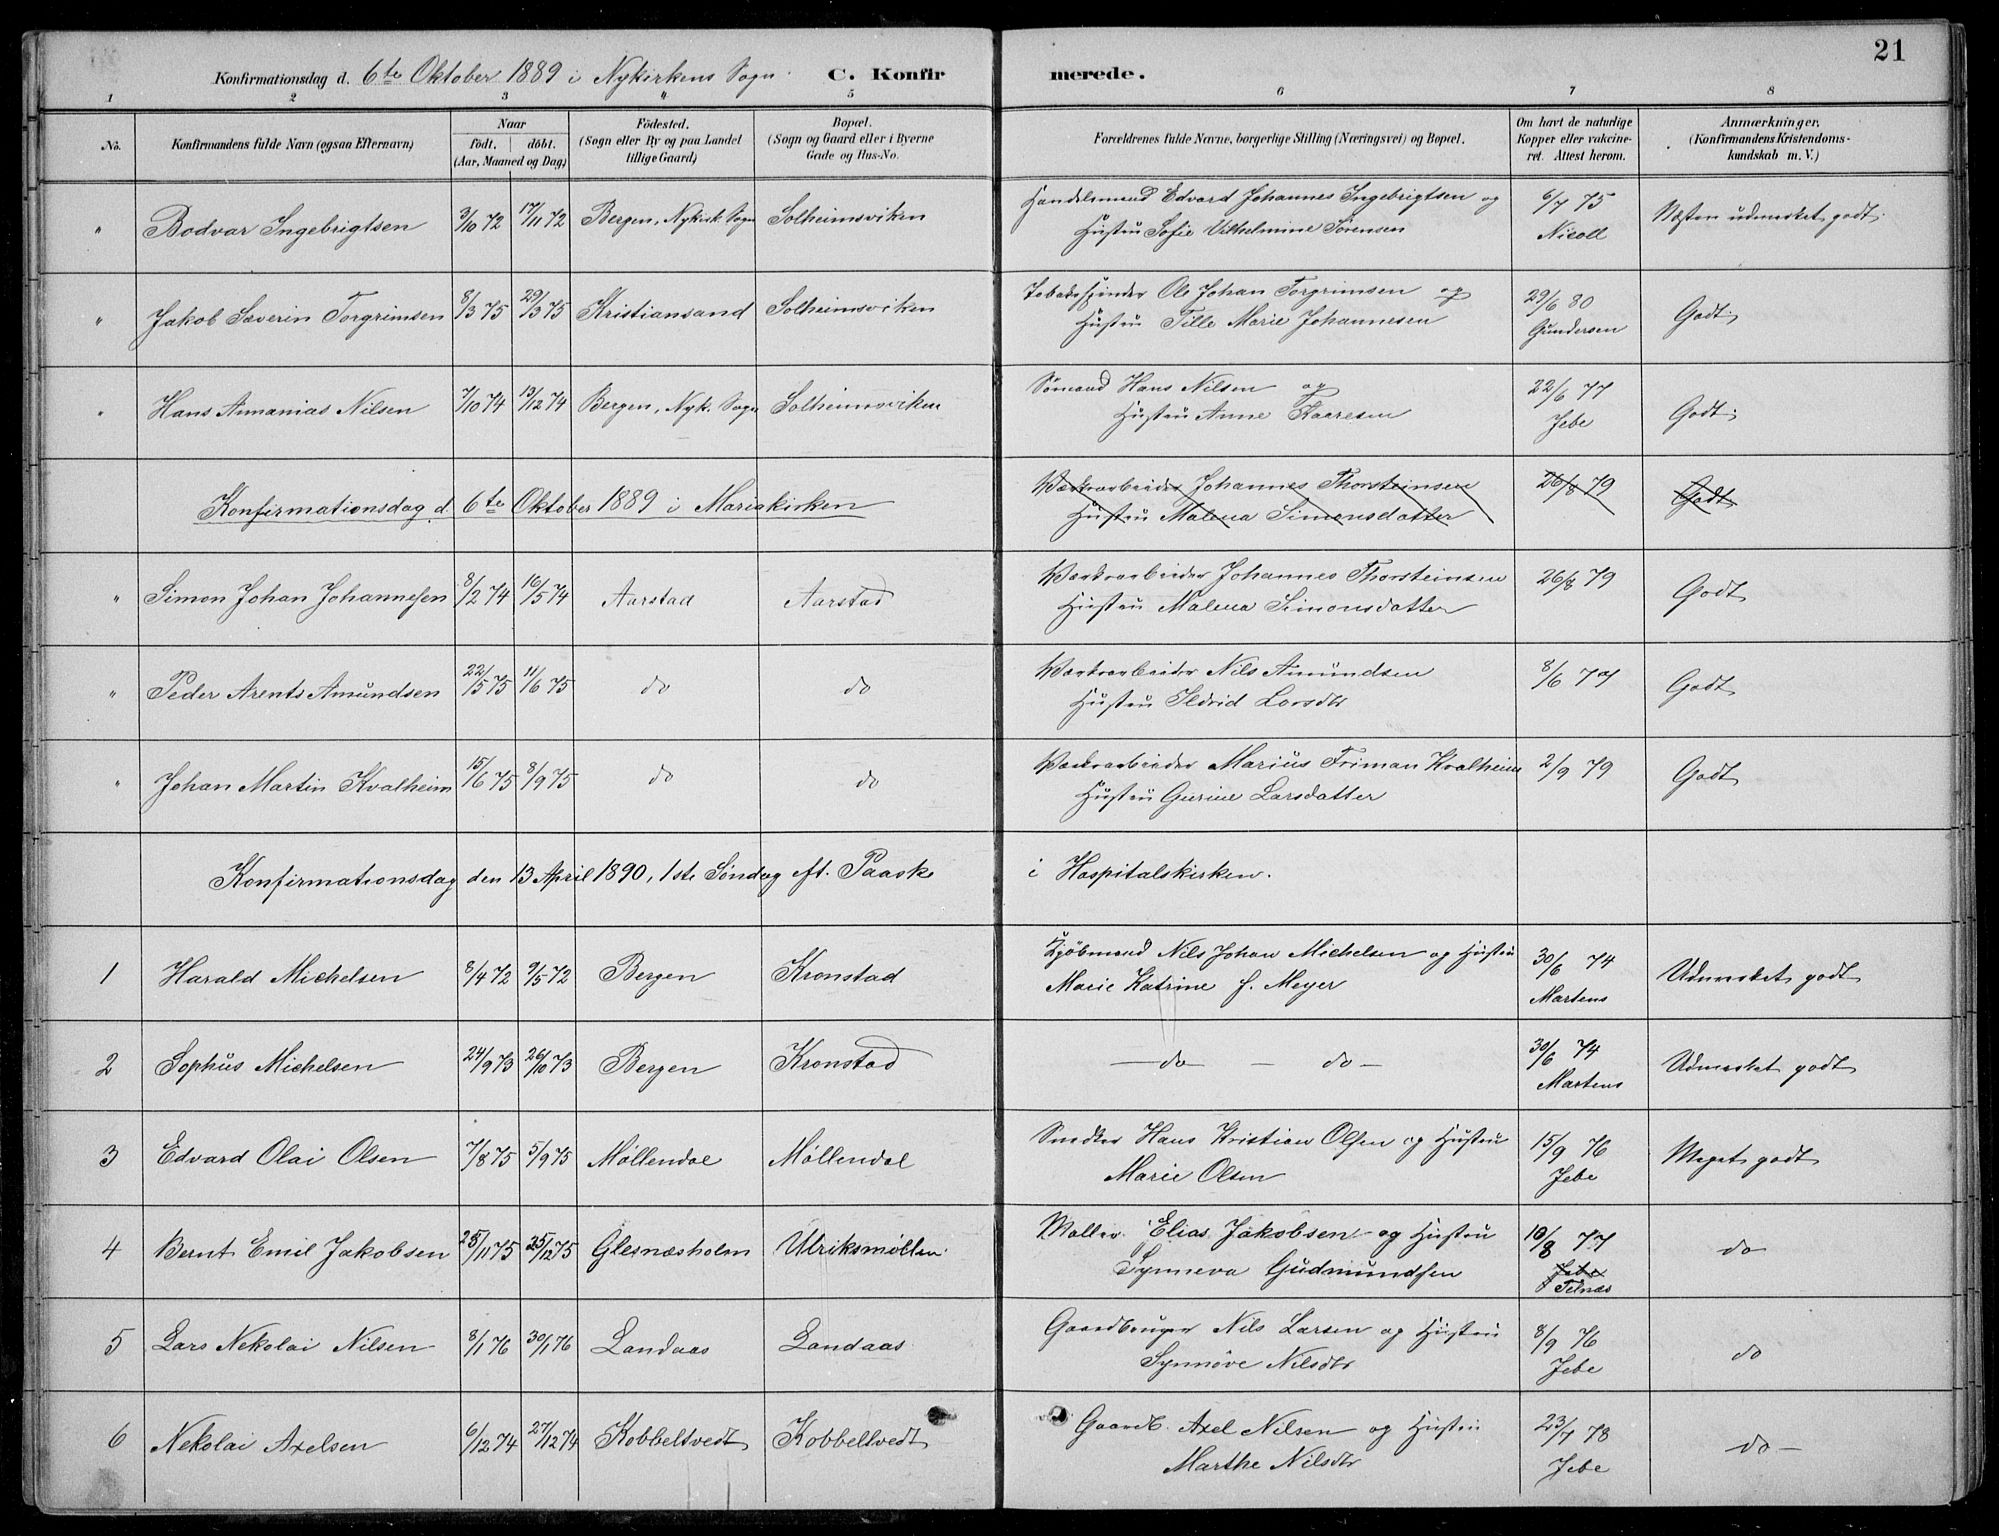 21
Konfirmationsdag d. 6te Oktober 1889 i Nykirkens Sogn. C. Konfirmerede.
1 2 3 4 5 6 7 8
No.
Konfirmandens fulde Navn (ogsaa Efternavn)
Naar
født. døbt.
(Aar, Maaned og Dag)
Fødested.
(Sogn eller By og paa Landet
tillige Gaard)
Bopæl.
(Sogn og Gaard eller i Byerne
Gade og Hus-No.
Forældrenes fulde Navne, borgerlige Stilling (Næringsvei) og Bopæl.
Om havt de naturlige
Kopper eller vakcine-
ret. Attest herom.
Anmærkninger.
(Konfirmandens Kristendoms-
kundskab m. V.)
" Bodvar Ingebrigtsen 3/10 72 17/11 72 Bergen, Nykirk. Sogn Solheimsviken Handelsmand Edvard Johannes Ingebrigtsen og 6/7 75 Næsten udmerket godt.
Hustru Sofie Vilhelmine Sørensen Nicoll
" Jakob Severin Torgrimsen 8/3 75 29/3 75 Kristiansand Solheimsviken Tobaksspinder Ole Johan Torgrimsen og 29/6 80 Godt.
Hustru Tille Marie Johannesen Gundersen
" Hans Annanias Nilsen 7/10 74 13/12 74 Bergen, Nyk. Sogn Solheimsviken Sømand Hans Nilsen og 22/6 77 Godt.
Hustru Anne Kaaresen Jebe
Konfirmationsdag d. 6te Oktober 1889 i Mariakirken Værksarbeider Johannes Thorsteinsen 26/8 79 Godt
Hustru Malena Simonsdatter
" Simon Johan Johannesen 8/2 74 16/5 74 Aarstad Aarstad Værksarbeider Johannes Thorsteinsen 26/8 79 Godt
Hustru Malena Simonsdatter
" Peder Arents Amundsen 22/5 75 11/6 75 do do Værksarbeider Nils Amundsen 8/6 77 Godt
Hustru Ildrid Larsdtr
" Johan Martin Kvalheim 15/6 75 8/9 75 do do Værksarbeider Marius Friman Kvalheim 2/9 79 Godt
Hustru Gurine Larsdatter
Konfirmationsdag den 13 April 1890, 1ste Søndag eft. Paaske i Hospitalskirken.
1 Harald Michelsen 8/4 72 9/5 72 Bergen Kronstad Kjøbmand Nils Johan Michelsen og Hustru 30/6 74 Udmerket godt
Marie Katrine f. Meyer Martens
2 Sophus Michelsen 24/9 73 26/10 73 Bergen Kronstad — do — do — 30/6 74 Udmerket godt
Martens
3 Edvard Olai Olsen 7/8 75 5/9 75 Møllendal Møllendal Snedker Hans Kristian Olsen og Hustru 15/9 76 Meget godt
Marie Olsen Jebe
4 Bernt Emil Jakobsen 25/11 75 25/12 75 Glesnæsholm Ulriksmøllen Møller Elias Jakobsen og Hustru 10/8 77 do
Synneva Gudmundsen Jebe
Telnæs
5 Lars Nekolai Nilsen 8/1 76 30/1 76 Landaas Landaas Gaardbruger Nils Larsen og Hustru 8/9 76 do
Synnøve Nilsdtr Jebe
6 Nekolai Axelsen 6/12 74 27/12 74 Kobbeltvedt Kobbeltvedt Gaardb. Axel Nilsen og Hustru 23/7 78 do —
Marthe Nilsdtr Jebe